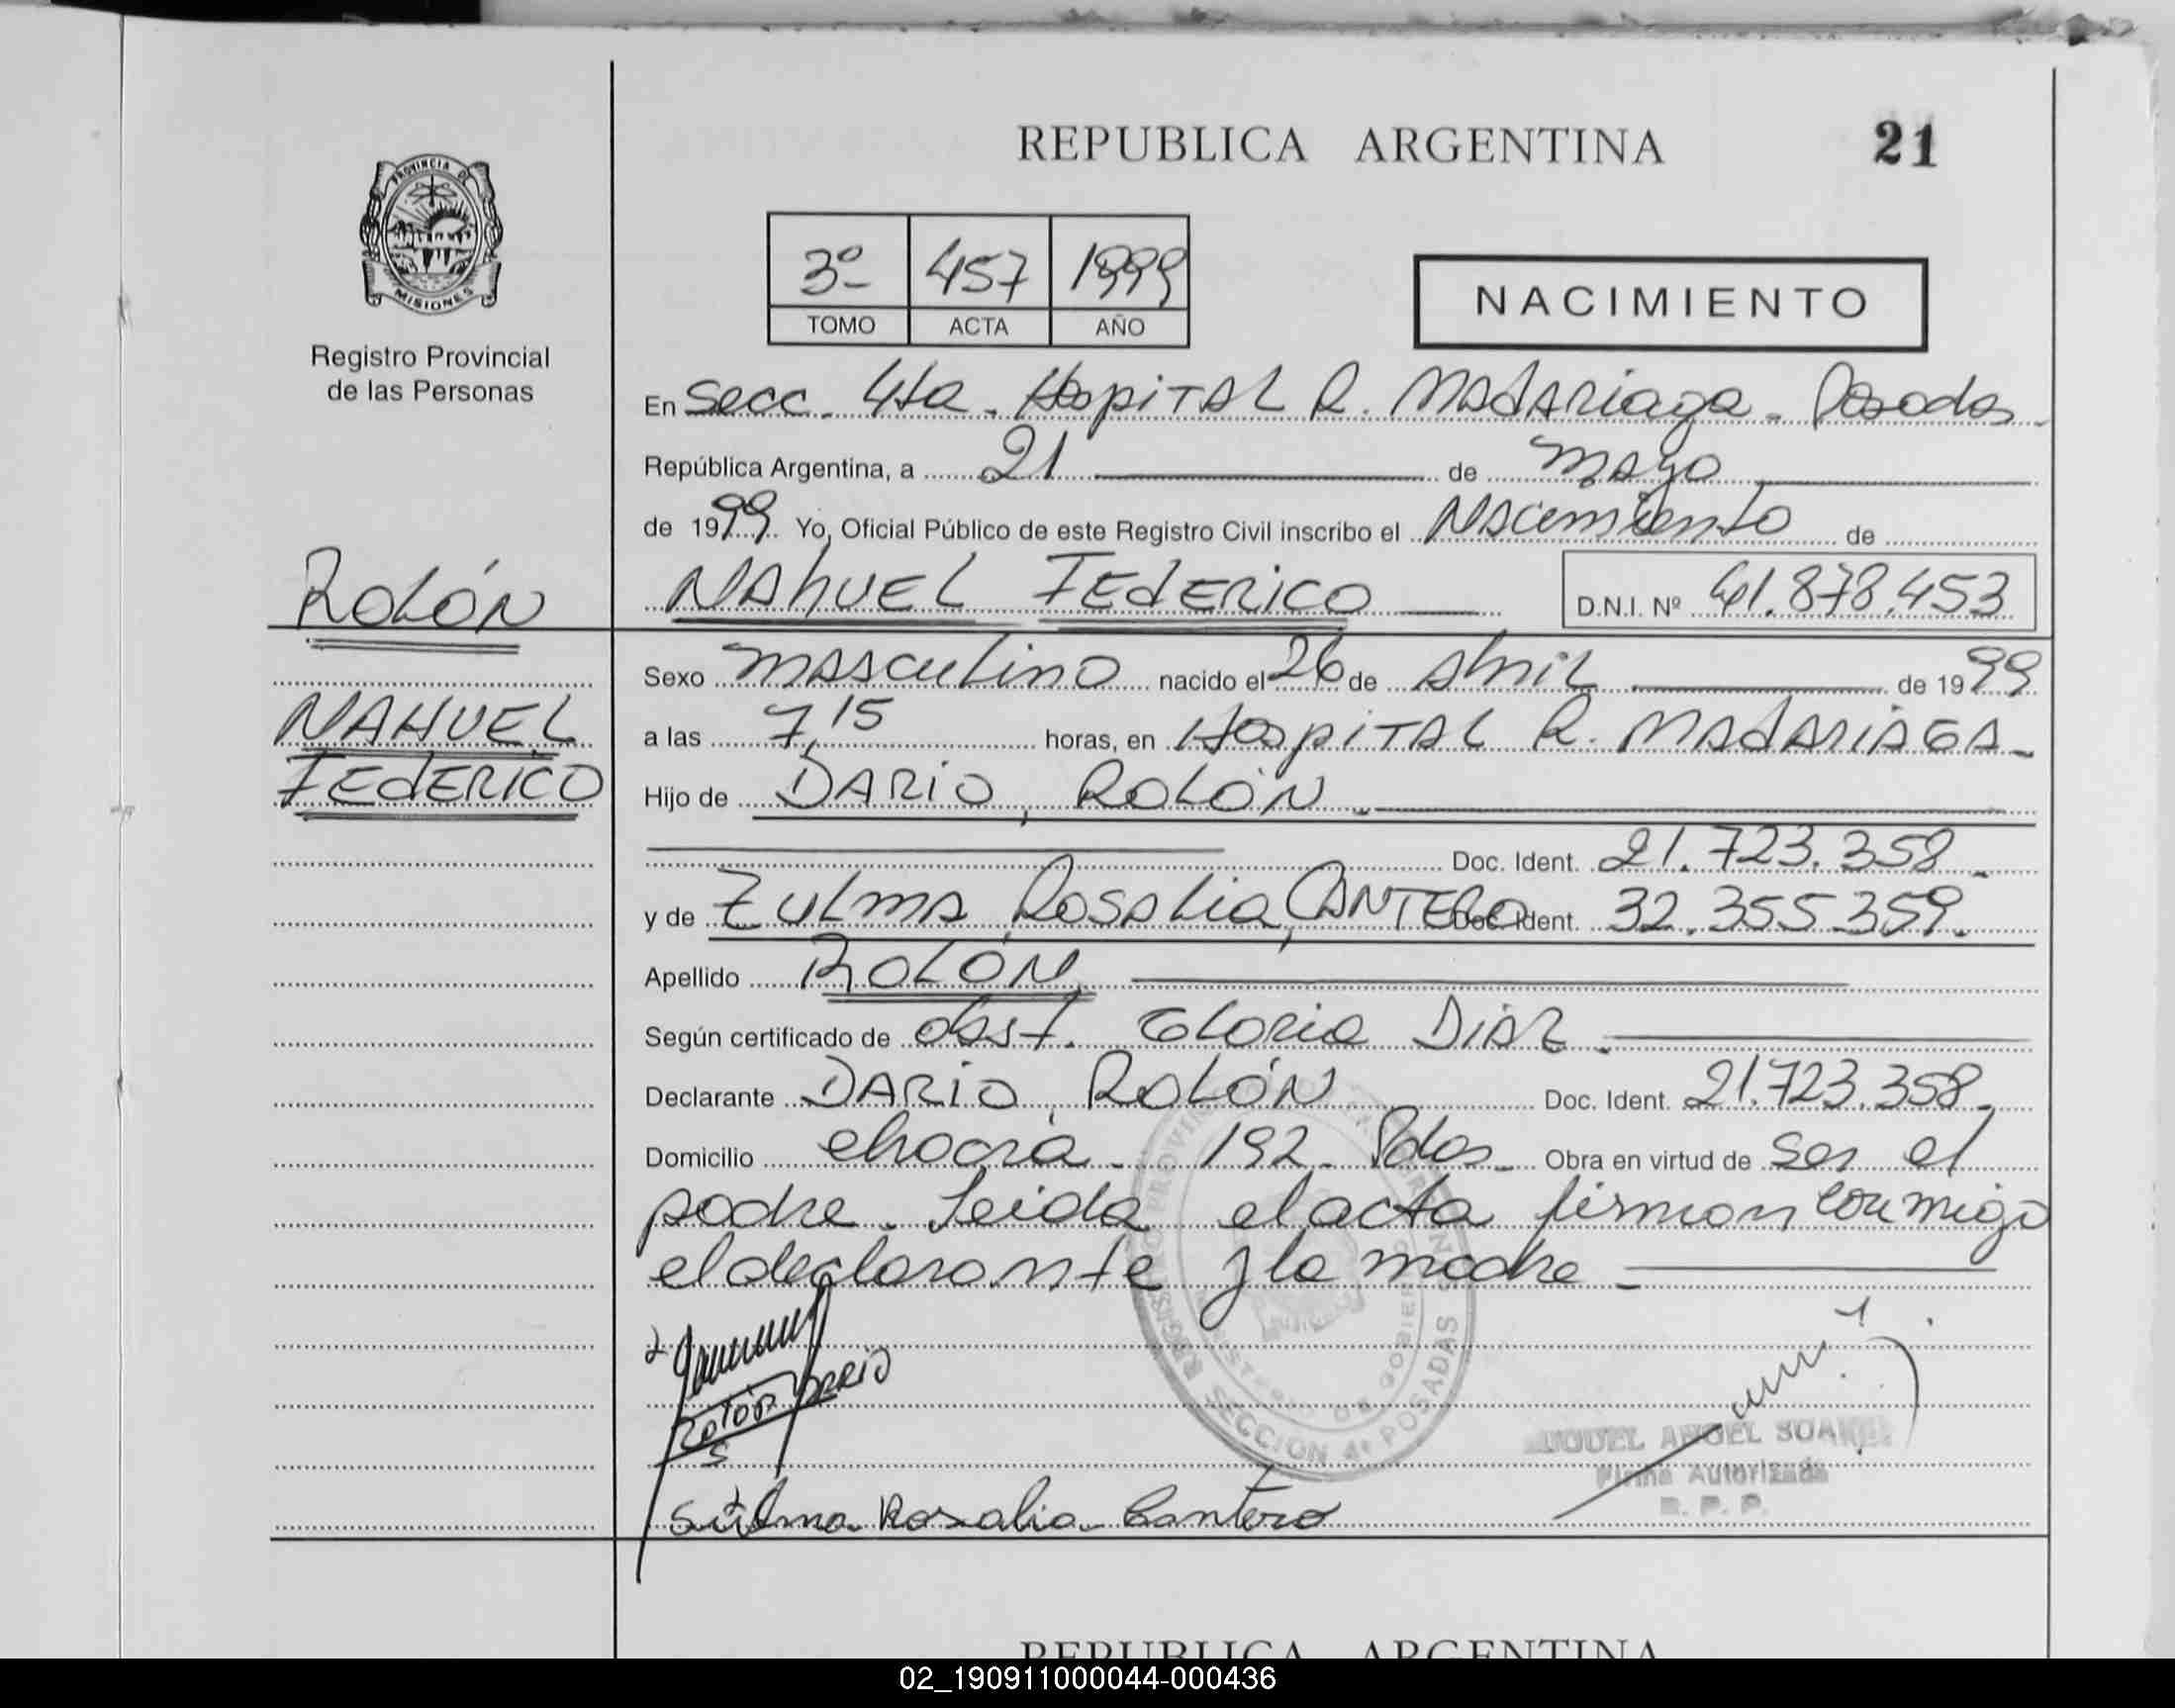 REPUBLICA ARGENTINA
21
PROVINCIA DE
MISIONES
Registro Provincial
de las Personas
3º 457 1999
TOMO ACTA AÑO
NACIMIENTO
En Secc. 4ta. Hospital R. Madariaga. Posadas
República Argentina, a 21 de mayo
de 1999. Yo, Oficial Público de este Registro Civil inscribo el Nacimiento de
NAHUEL FEDERICO D.N.I. Nº 41.878.453
ROLÓN
NAHUEL
FEDERICO
Sexo masculino nacido el 26 de Abril de 1999
a las 7,15 horas, en Hospital R. MADARIAGA
Hijo de DARIO, ROLÓN
Doc. Ident. 21.723.358
y de Zulma Rosalia, CANTERO Doc. Ident. 32.355.359.
Apellido ROLÓN
Según certificado de obst. Gloria DIAZ
Declarante DARIO, ROLÓN Doc. Ident. 21.723.358
Domicilio chacra 192 Pdas Obra en virtud de ser el
padre. Leida el acta firman conmigo
el declarante y la madre
Rolón DARIO
Sulma Rosalia Cantero
SECCION 4ª POSADAS
MIGUEL ANGEL SUAREZ
Firma Autorizada
R. P. P.
REPUBLICA ARGENTINA
02_190911000044-000436